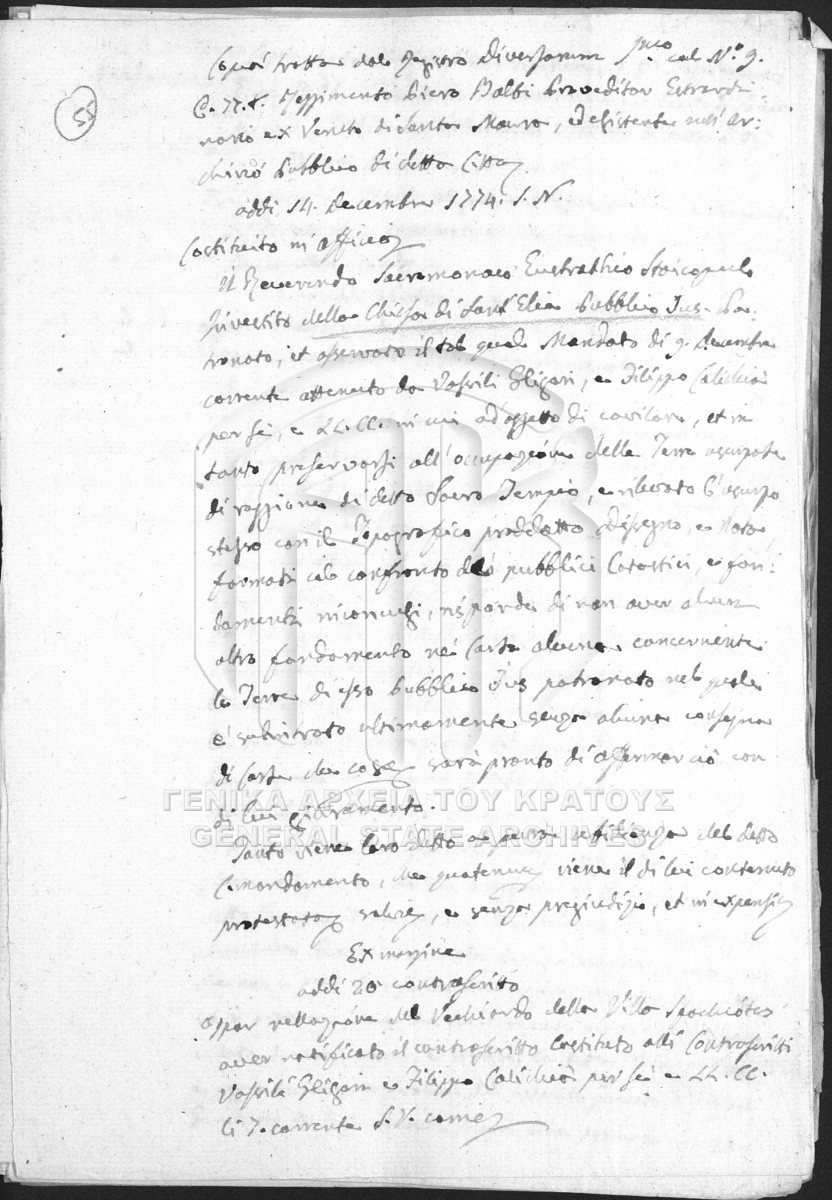 55
Copia tratta dal Registro Diversorum p.mo al N.o 9.
C. 77. t. Reggimento Piero Balbi Proveditor Estraordi-
nario ex Veneto di Santa Maura, ed esistente nell' ar:
chivio pubblico di detta Città
addi 14. Decembre 1774. S. N.
Costituito in officio
Il Reverendo Sacromonaco Eustrathio Stoicopulo
Investito della Chiesa di Sant' Elia Pubblico Jus-Pa.
tronato, et osservato il tal qual Mandato di 9. Decembre
corrente ottenuto da Vassili Gligori, e Filippo Calichiò
per sè, e LL. CC. in cui ad oggetto di cavilare, et in
tanto preservarsi all' occupazione delle Terre usurpate
di raggione di detto Sacro Tempio, e rilevato l' usurpo
stesso con il Topografico prodotto Dissegno, e Nota
formati al confronto dei pubblici Catastici, e fon:
damenti inconcussi, risponde di non aver alcun
altro fondamento nè Carta alcuna concernente
le Terre di esso Pubblico Jus patronato nel quale
è subintrato ultimamente senza alcuna consegna
di Carte che cosa sarà pronto di affermarciò con
di lui giuramento.
ΓΕΝΙΚΑ ΑΡΧΕΙΑ ΤΟΥ ΚΡΑΤΟΥΣ
GENERAL STATE ARCHIVES
Tanto viene loro detto a pura del detto
Comandamento, che quatenus viene il di lui contenuto
protestato, e senza pregiudizio, et in expensis
Ex margine
addi 20 contrascritto
Appar rellazione del Vechiardo della Villa Spachiotes
aver notificato il contrascritto Costituto alli Contrascritti
Vassili Gligori e Filippo Calichiò per sè e LL. CC.
li corrente S. V. come